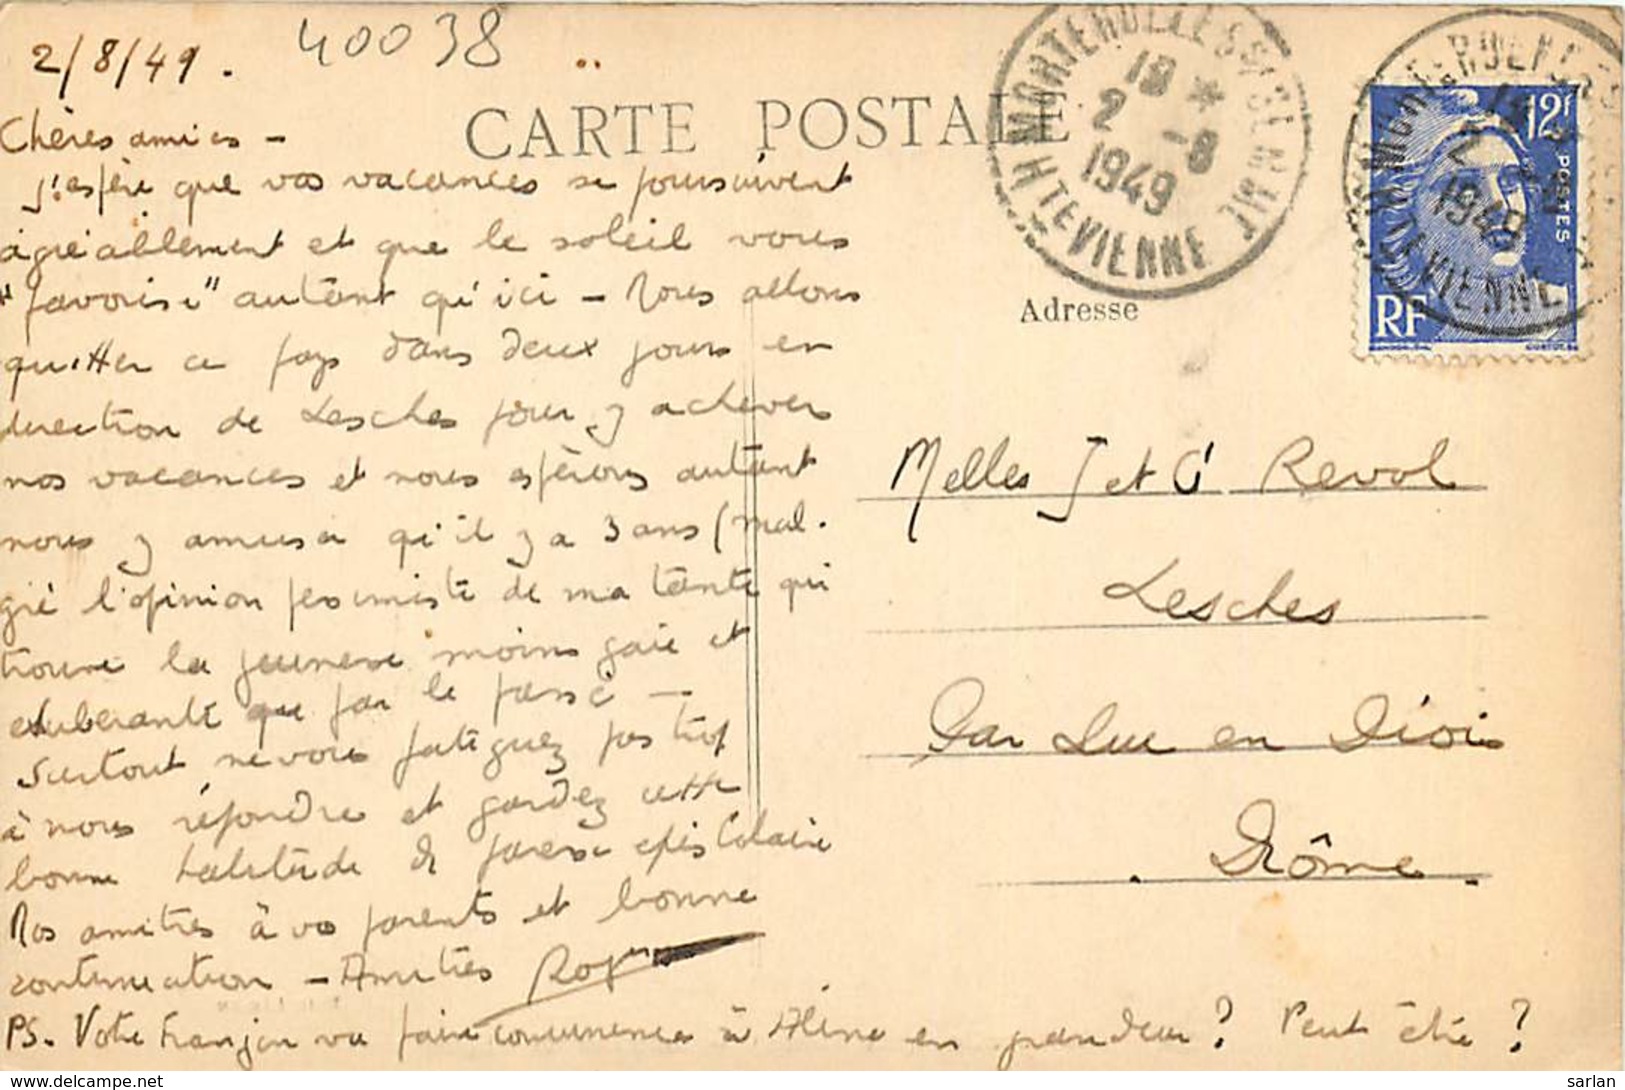 2/8/49.
40038
CARTE POSTALE
Chères amies -
J'espère que vos vacances se poursuivent
agréablement et que le soleil vous
"favorise" autant qu'ici - Nous allons
quitter ce pays dans deux jours en
direction de Lesches pour y achever
nos vacances et nous espérons autant
nous y amuser qu'il y a 3 ans (mal-
gré l'opinion pessimiste de ma tante qui
trouve la jeunesse moins gaie et
exubérante que par le passé -
Surtout ne vous fatiguez pas trop
à nous répondre et gardez cette
bonne habitude de paresse épistolaire
Nos amitiés à vos parents et bonne
continuation - Amitiés Roger
PS. Votre Franjou va faire concurrence à Aline en grandeur ? Peut être ?
18 *
2 -8
1949
HTE VIENNE
12F
POSTES
RF
1949
VIENNE
Adresse
Melles J et C Revol
Lesches
Par Luc en Diois
Drôme.
www.delcampe.net
sarlan